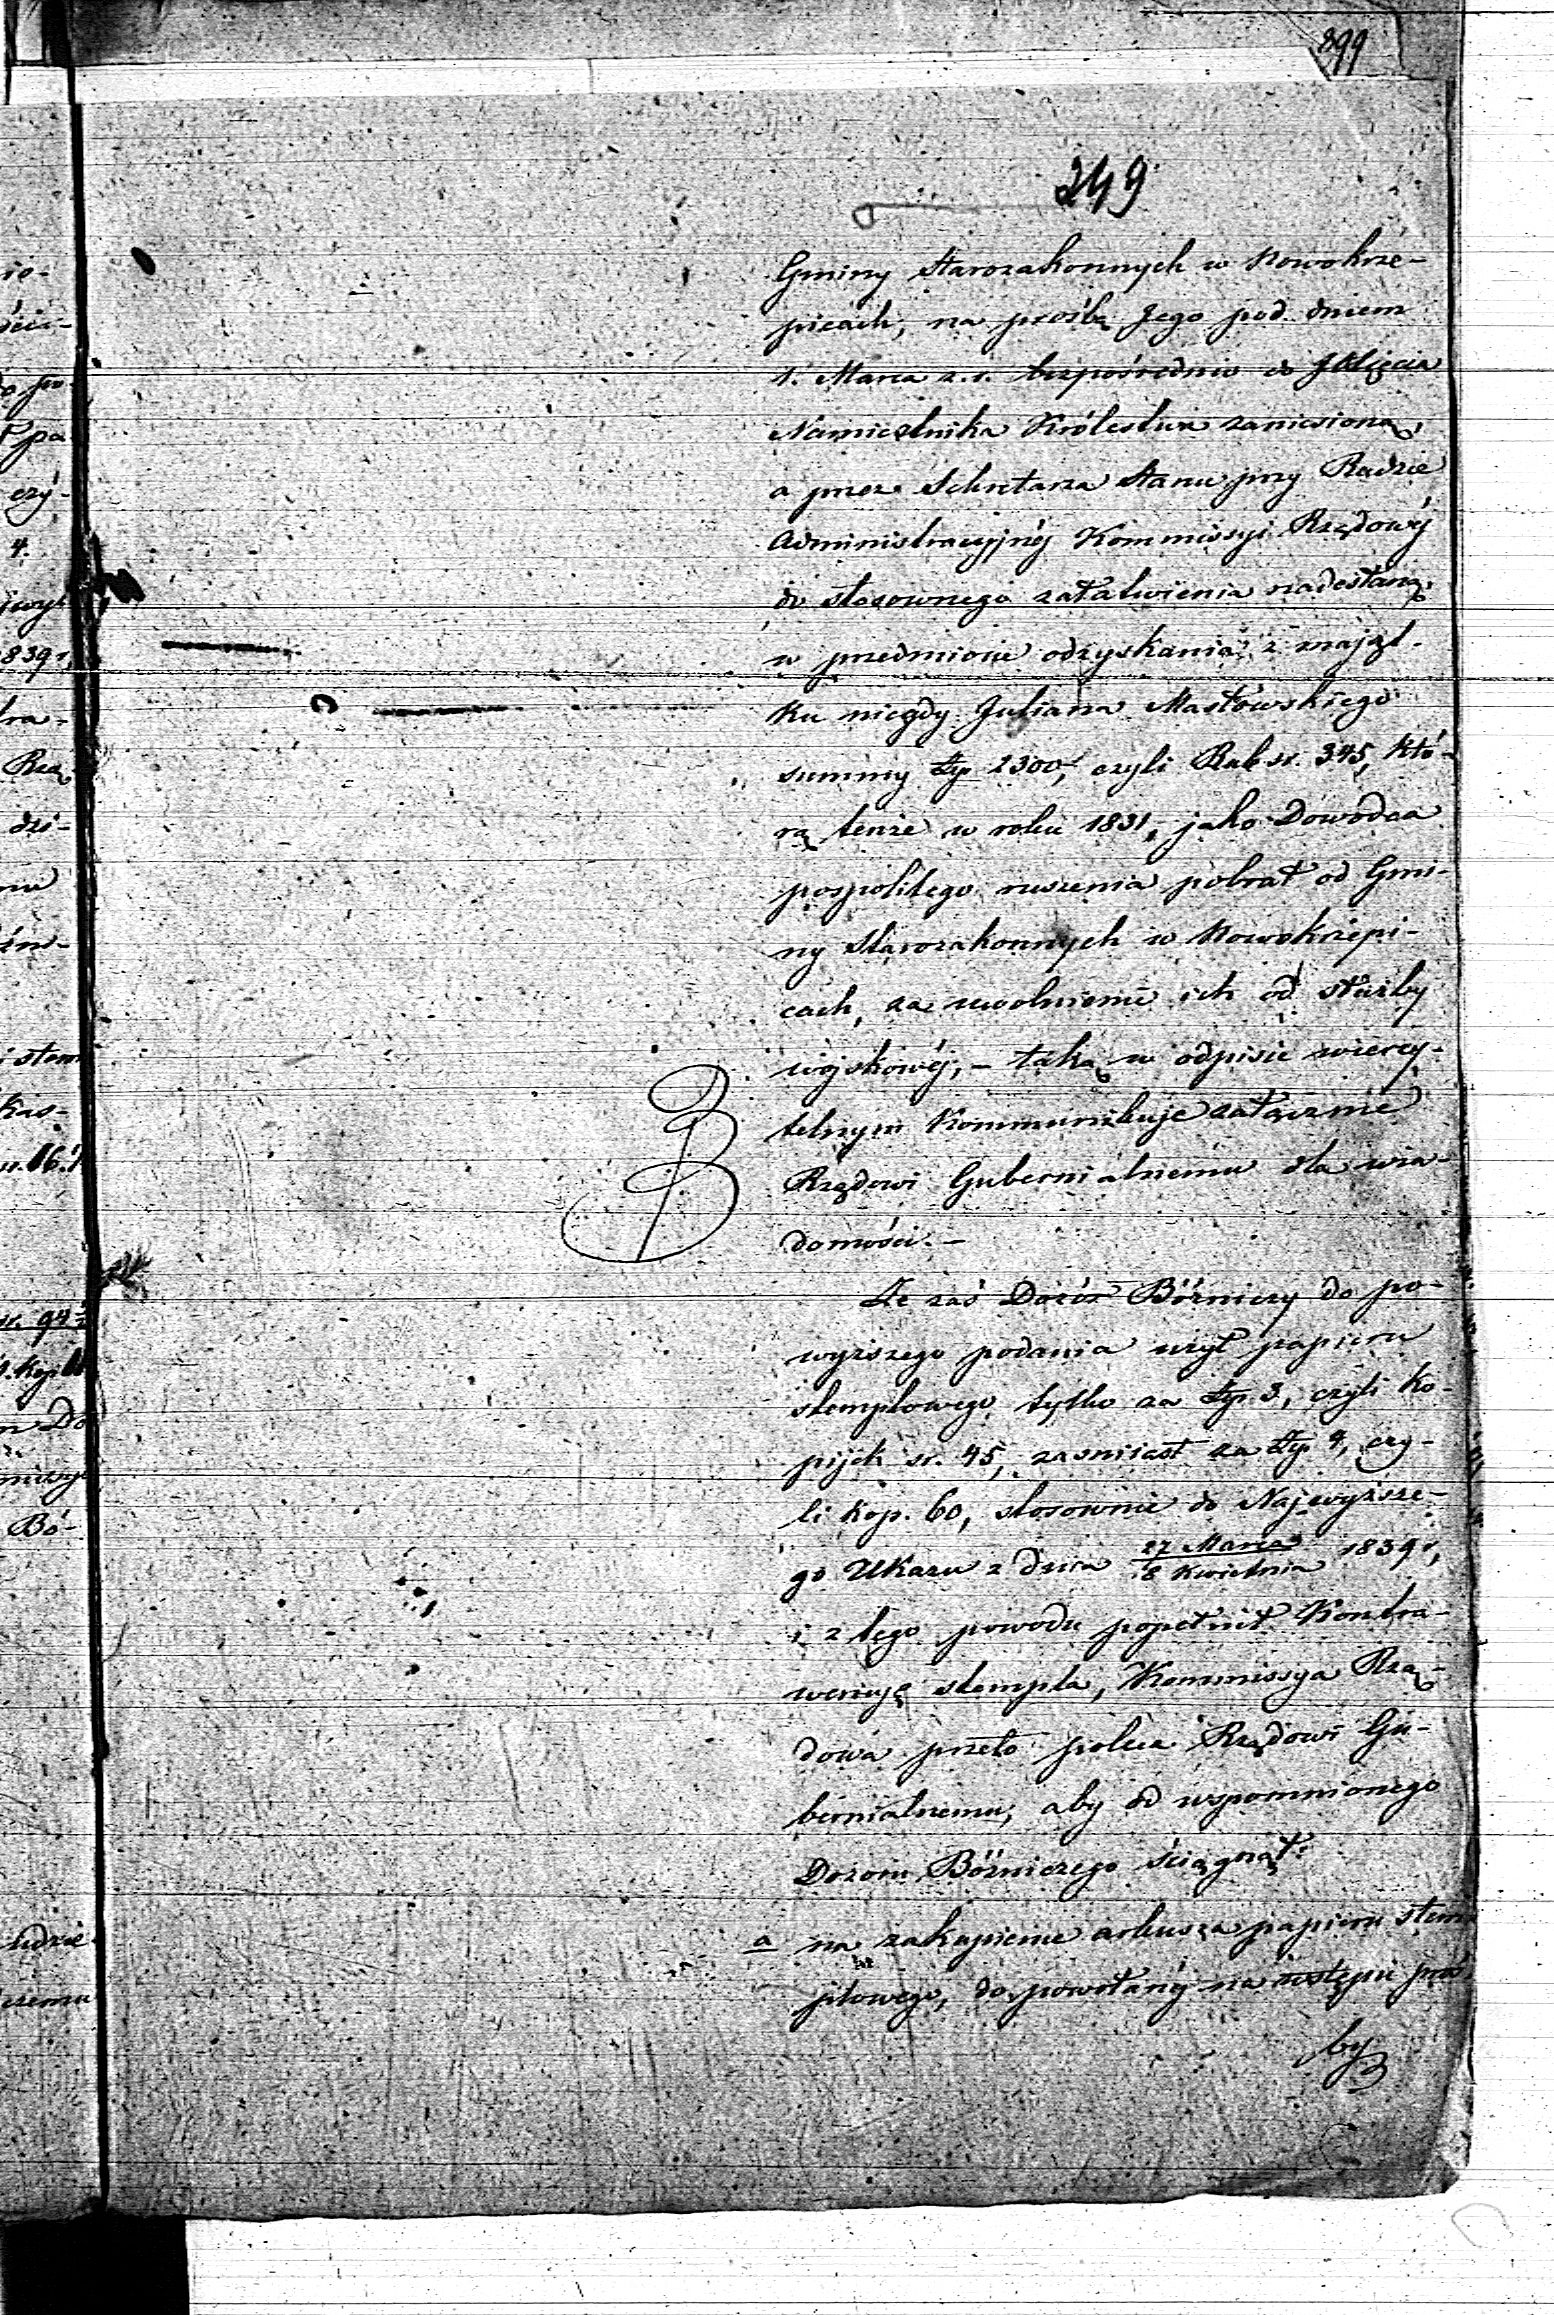 899
249
Gminy Starozakonnych w Nowokrze-
picach, na prośbę Jego pod dniem
1. Marca z. r. bezpośrednio do JO Xięcia
Namiestnika Królestwa zaniesioną,
a przez Sekretarza Stanu przy Radzie
Administracyjnéj Kommissyi Rządowéj
do stosownego załatwienia nadesłaną,
w przedmiocie odzyskania z mająt-
ku niegdy Juliana Masłowskiego
summy Złp 2300, czyli Rub sr. 345, któ-
rą tenże w roku 1831, jako Dowódca
pospolitego ruszenia pobrał od Gmi-
ny Starozakonnych w Nowokrzepi-
cach, za uwolnienie ich od służby
wojskowéj, - taką w odpisie wierzy-
telnym Kommunikuje załącznie
Rządowi Gubernialnemu dla wia-
domości. -
Że zaś Dozór Bóżniczy do po-
wyższego podania użył papieru
stemplowego tylko za Złp. 3, czyli ko-
pijek sr. 45, zamiast za Złp 4, czy-
li kop. 60, stosownie do Najwyższe-
go Ukazu z dnia 27 Marca / 8 Kwietnia 1839 r,
i z tego powodu popełnił Kontra-
wencyę stempla, Kommissya Rzą-
dowa przeto poleca Rządowi Gu-
bernialnemu, aby od wspomnionego
Dozoru Bóżniczego ściągnął:
a na zakupienie arkusza papieru stem
plowego, do powołanéj na wstępie proś
by